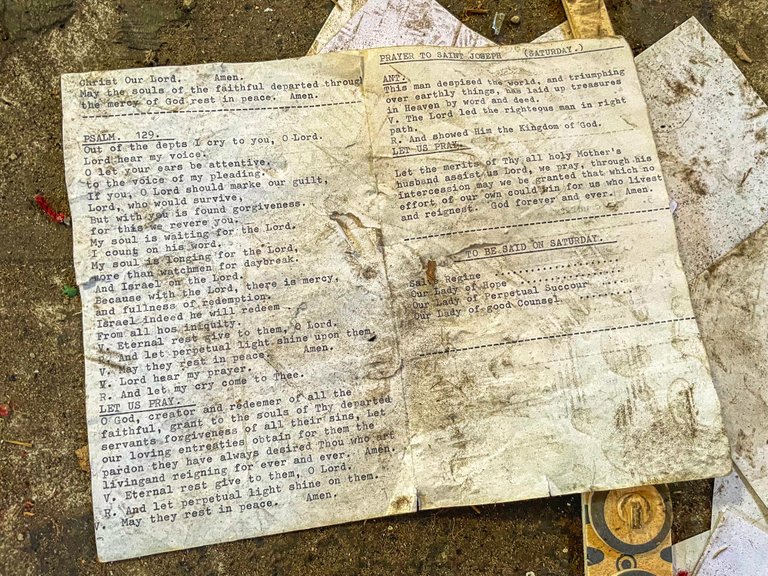 Christ Our Lord. Amen.
May the souls of the faithful departed through
the mercy of God rest in peace. Amen.
PSALM. 129.
Out of the depts I cry to you, O Lord.
Lord hear my voice.
O let your ears be attentive.
to the voice of my pleading.
If you, O Lord should mark our guilt.
Lord, who would survive,
But with you is found gorgiveness.
for this we revere you.
My soul is waiting for the Lord.
I count on his word.
My soul is longing for the Lord,
more than watchmen for daybreak.
And Israel on the Lord.
Because with the Lord, there is mercy,
and fullness of redemption.
Israel indeed he will redeem
From all hos iniquity.
V. Eternal rest give to them, O Lord.
R. And let perpetual light shine upon them
V. May they rest in peace. Amen.
V. Lord hear my prayer.
R. And let my cry come to Thee.
LET US PRAY.
O God, creator and redeemer of all the
faithful, grant to the souls of Thy departed
servants forgiveness of all their sins, Let
our loving entresties obtain for them the
pardon they have always desired Thou who art
livingand reigning for ever and ever. Amen.
V. Eternal rest give to them, O Lord.
R. And let perpetual light shine on them.
V. May they rest in peace. Amen.
PRAYER TO SAINT JOSEPH (SATURDAY.)
ANT.
This man despised the world, and triumphing
over earthly things, has laid up treasures
in Heaven by word and deed.
V. The Lord led the righteous man in right
path.
R. And showed Him the Kingdom of God.
LET US PRAY.
Let the merits of Thy all holy Mother's
husband assist us Lord, we pray, through his
intercession may we be granted that which no
effort of our own could win for us who livest
and reignest. God forever and ever. Amen.
TO BE SAID ON SATURDAY.
Salve Regine ..................
Our Lady of Hope ..............
Our Lady of Perpetual Succour ......
Our Lady of good Counsel ........